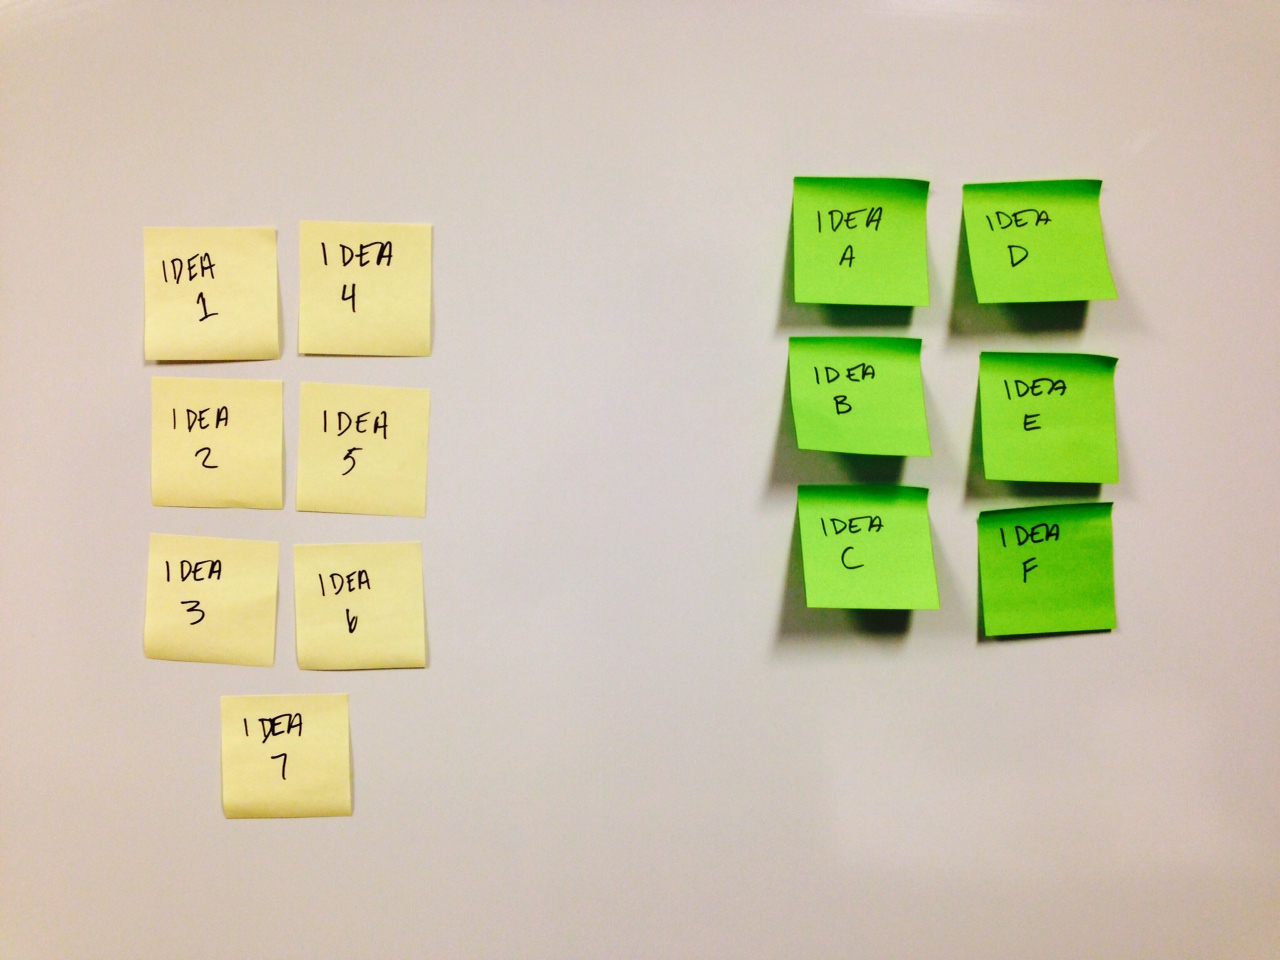 IDEA
1
IDEA
4
IDEA
2
IDEA
5
IDEA
3
IDEA
6
IDEA
7
IDEA
A
IDEA
D
IDEA
B
IDEA
E
IDEA
C
IDEA
F